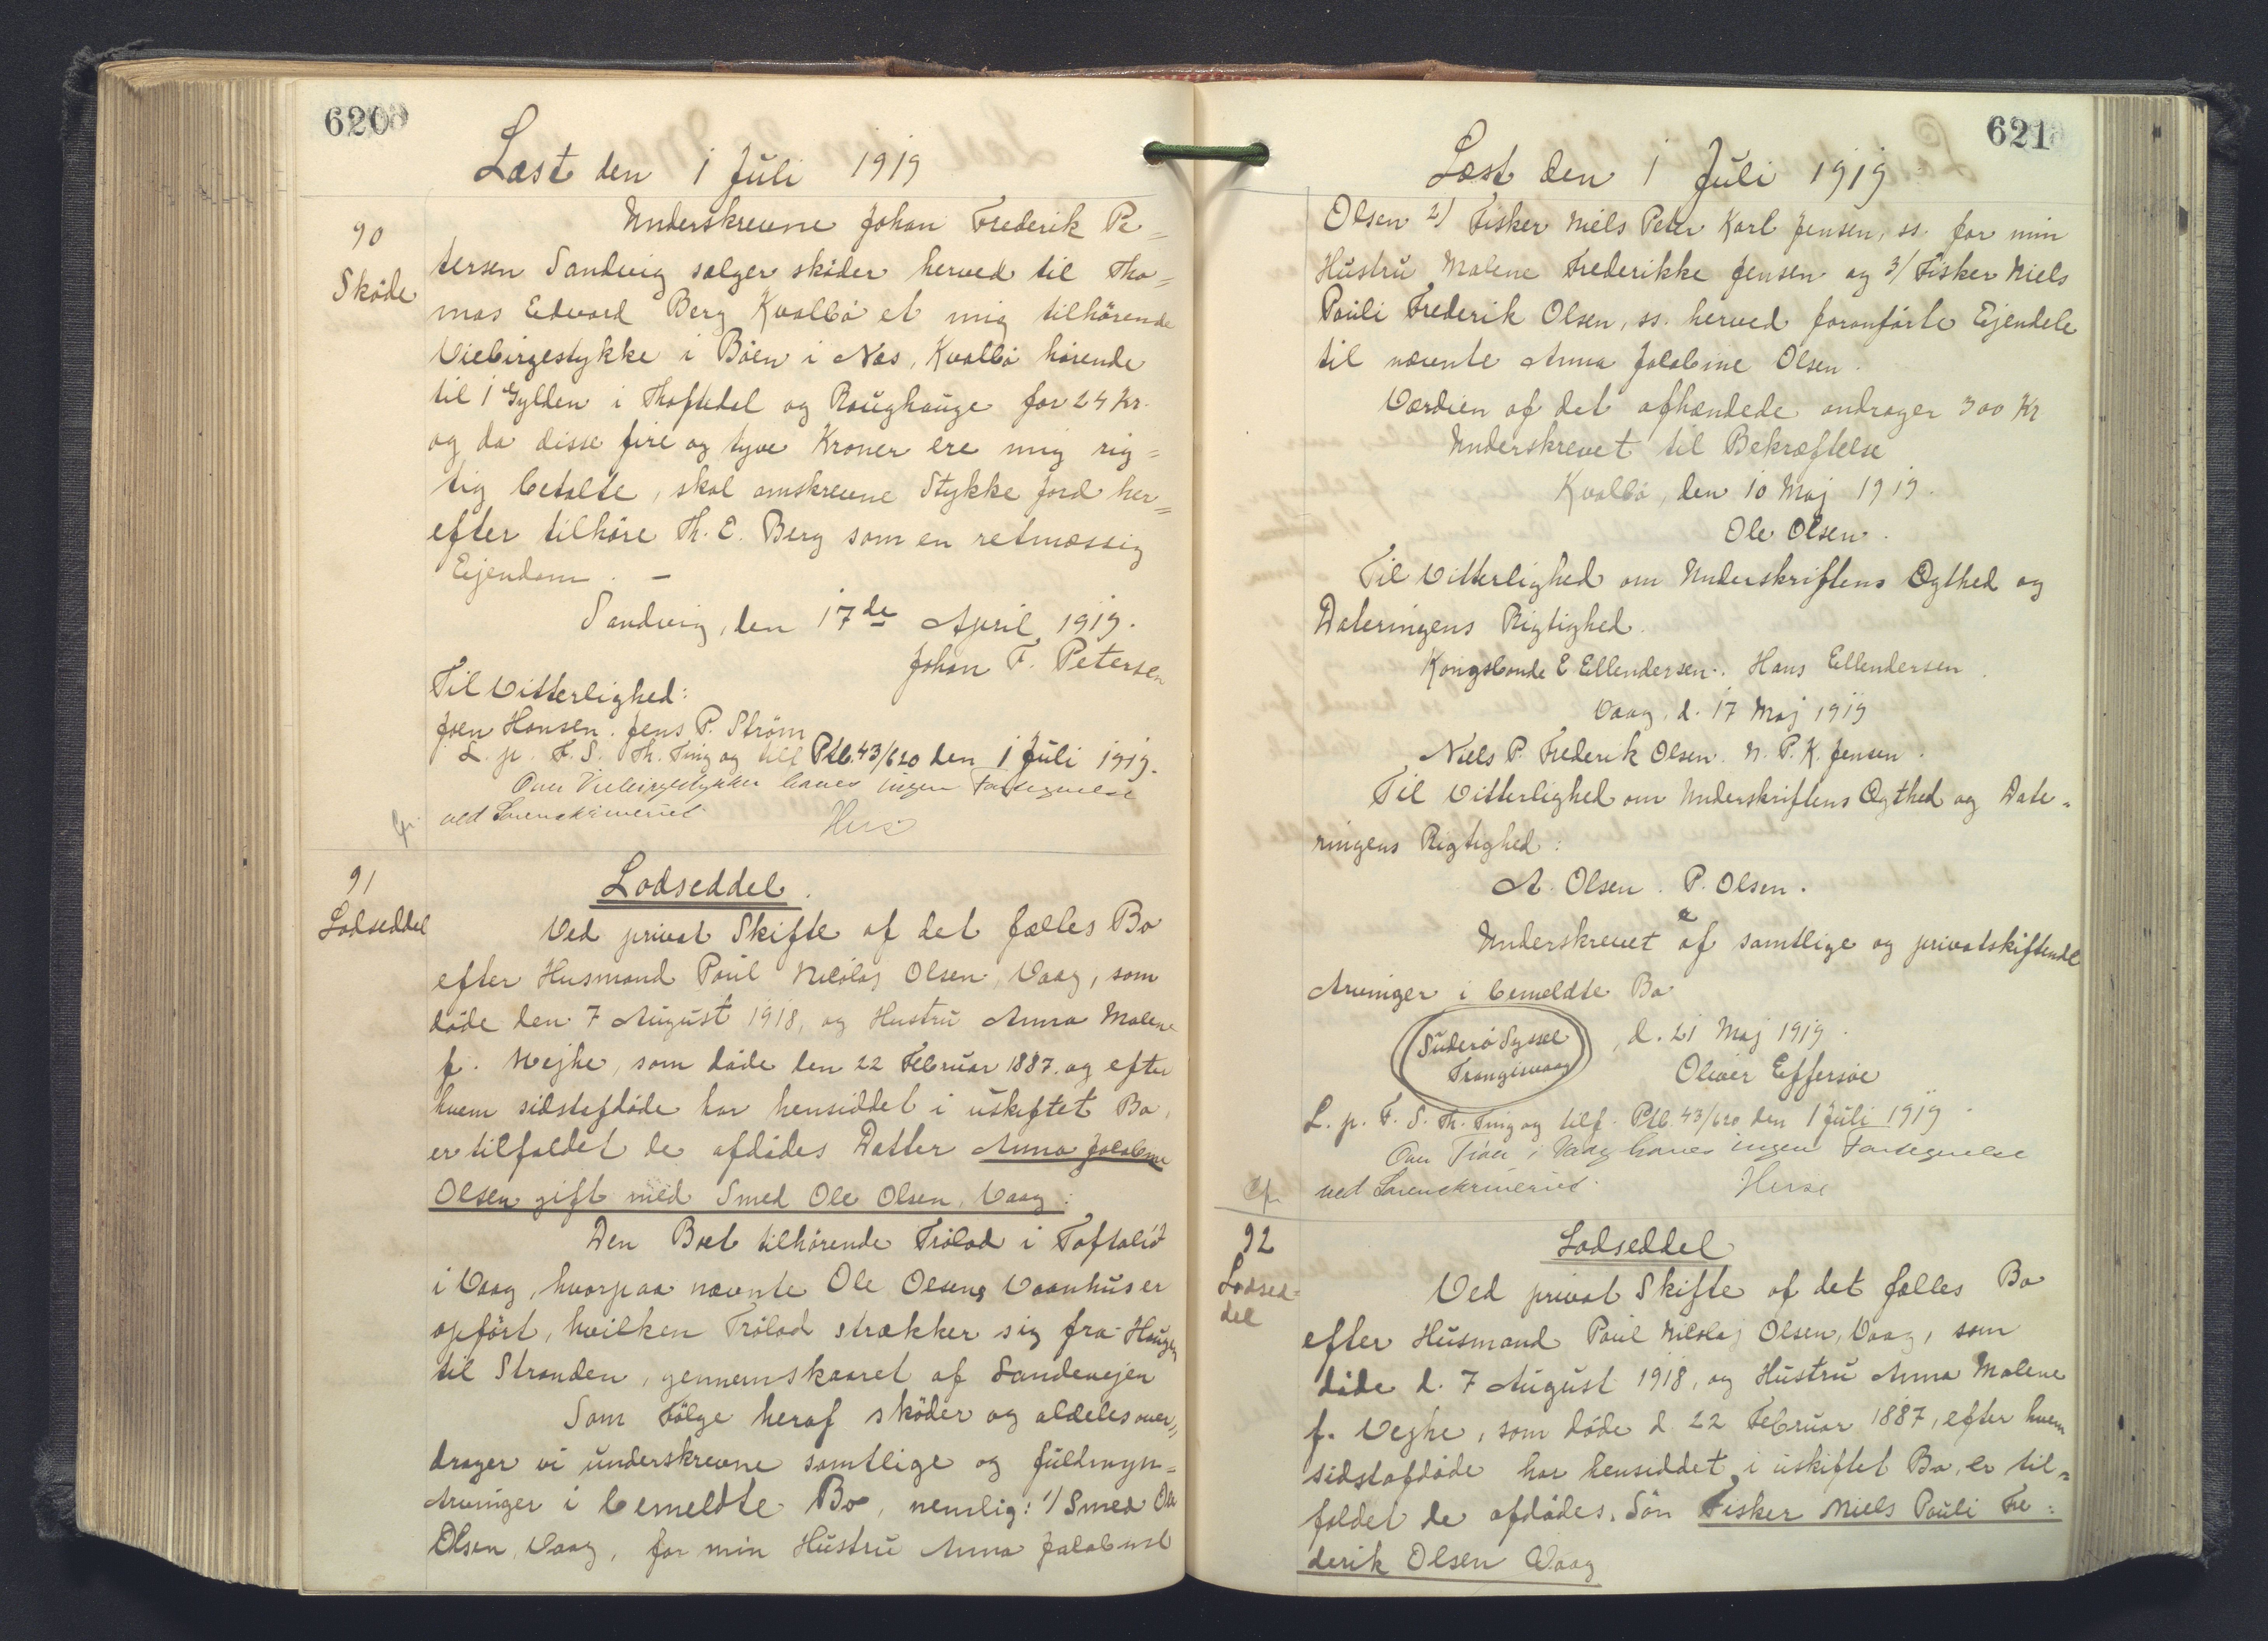 620
Læst den 1 Juli 1919
90
Sköde
Underskrevne Johan Frederik Pe=
tersen Sandvig sælger sköder herved til Tho=
mas Edvard Berg Kvalbö et mig tilhörende
Viebirgestykke i Böen i Næs, Kvalbö hörende
til 1 Gylden i Thoftedal og Roughauge for 24 Kr.
og da disse fire og tyve Kroner ere mig rig=
tig betalte, skal omskrevne Stykke Jord her=
efter tilhöre Th. E. Berg som en retmæssig
Ejendom. –
Sandvig, den 17de April 1919.
Johan F. Petersen
Til Vitterlighed:
Joen Hansen. Jens P. Ström
L. p. F. S. Th. Ting og till Ptb. 43/620 den 1 Juli 1919.
Over Viebirgestykker haves ingen Fortegnelse
ved Sorenskriveriet.
91
Lodseddel
Lodseddel.
Ved privat Skifte af det fælles Bo
efter Husmand Poul Nicolaj Olsen, Vaag, som
döde den 7 August 1918, og Hustru Anna Malene
f. Wejhe, som döde den 22 Februar 1887. og efter
hvem sidstafdöde har hensiddet i uskiftet Bo,
er tilfaldet de afdödes Datter Anna Jakobine
Olsen gift med Smed Ole Olsen, Vaag:
Den Boet tilhörende Trölad i Toftalið
i Vaag, hvorpaa nævnte Ole Olsens Vaanhus er
opfört, hvilken Trölad strækker sig fra Haugen
til Stranden, gennemskaaret af Landevejen
Som Fölge heraf sköder og aldeles over=
drager vi underskrevne samtlige og fuldmyn=
Arvinger i bemeldte Bo, nemlig: 1/ Smed Ole
Olsen, Vaag, for min Hustru Anna Jakobine
621
Læst den 1 Juli 1919
Olsen 2/ Fisker Niels Peter Karl Jensen, ss. for min
Hustru Malene Frederikke Jensen og 3/ Fisker Niels
Pouli Frederik Olsen, ss. herved foranförte Ejendele
til nævnte Anna Jakobine Olsen.
Værdien af det afhændede andrager 300 Kr
Underskrevet til Bekræftelse
Kvalbö, den 10 Maj 1919.
Ole Olsen.
Til Vitterlighed om Underskriftens Ægthed og
Dateringens Rigtighed.
Kongsbonde E Ellendersen. Hans Ellendersen.
Vaag, d. 17 Maj 1919
Niels P. Frederik Olsen. N. P. K. Jensen.
Til Vitterlighed om Underskriftens Ægthed og Date=
ringens Rigtighed:
A. Olsen. P. Olsen.
Underskrevet af samtlige og privatskiftende
Arvinger i bemeldte Bo
Suderö Syssel
Trangisvaag
, d. 21 Maj 1919.
Oliver Effersöe
L. p. F. S. Th. Ting og tilf. Ptb. 43/620 den 1 Juli 1919.
Over Tröer i Vaag haves ingen Fortegnelse
ved Sorenskriveriet.
92
Lodsed=
del
Lodseddel
Ved privat Skifte af det fælles Bo
efter Husmand Poul Nikolaj Olsen, Vaag, som
döde d. 7 August 1918, og Hustru Anna Malene
f. Vejhe, som döde d. 22 Februar 1887, efter hvem
sidstafdöde har hensiddet i uskiftet Bo, er til=
faldet de afdödes Sön Fisker Niels Pouli Fre=
derik Olsen Vaag